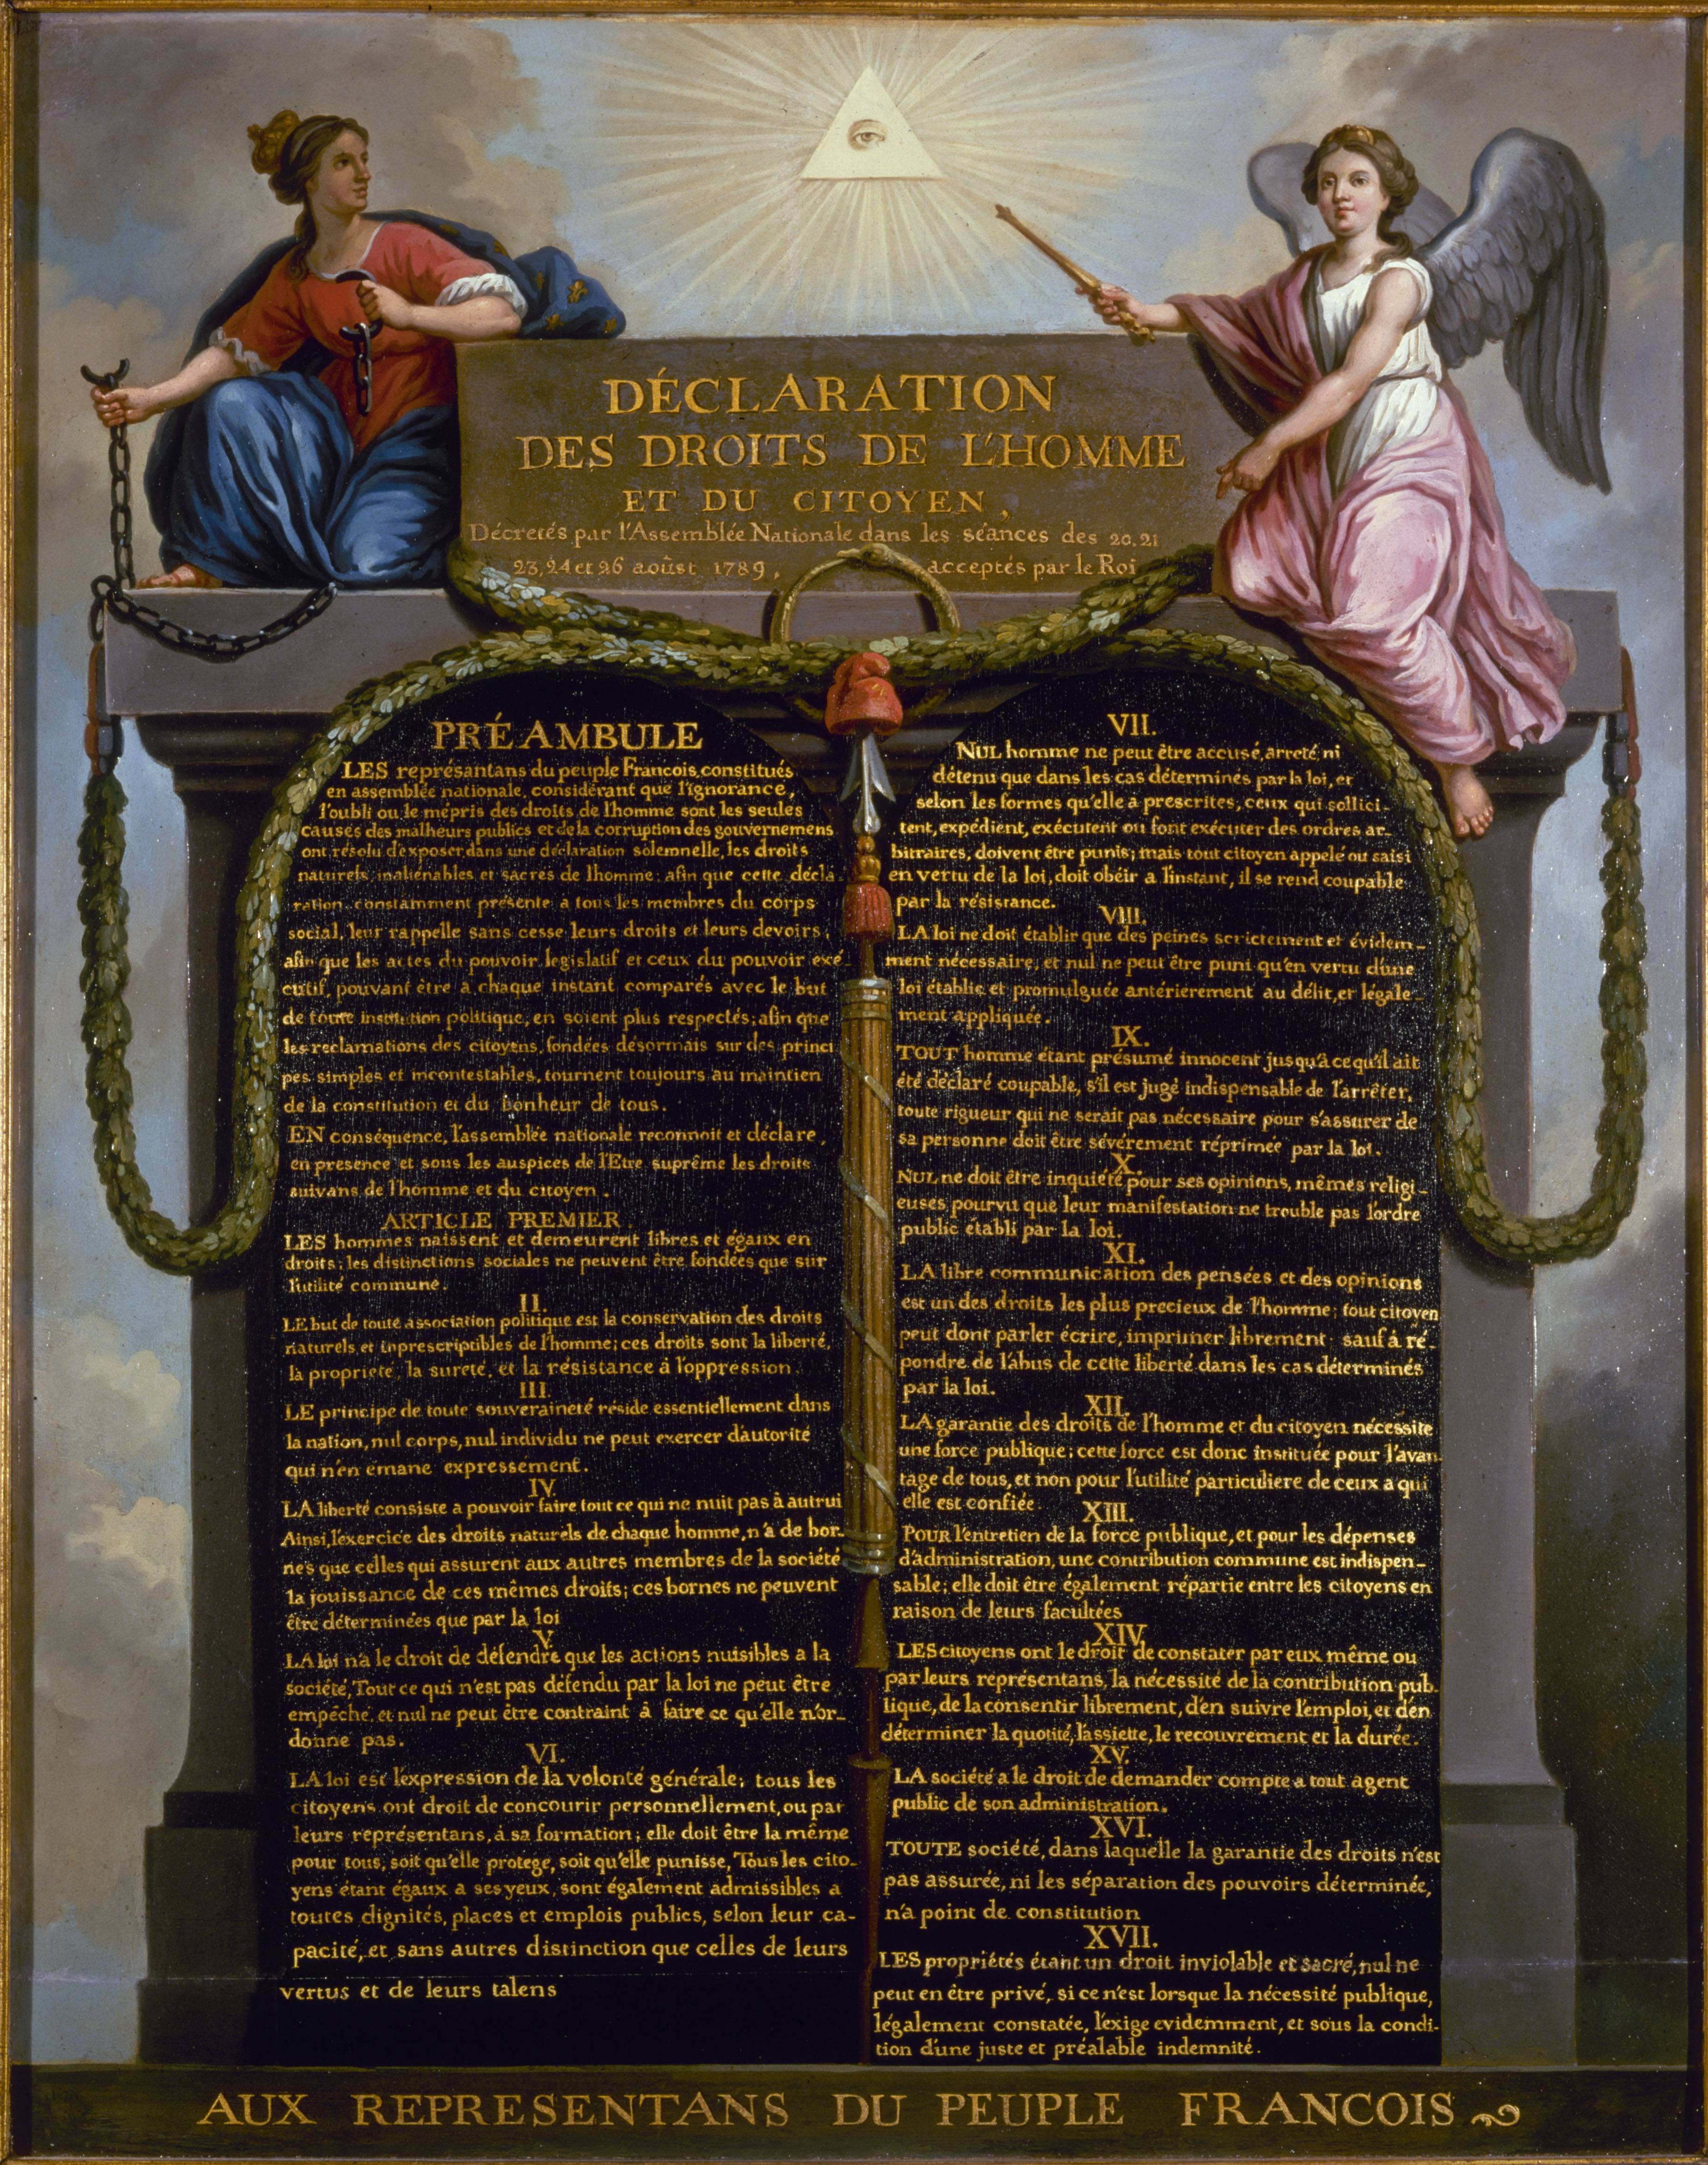 DÉCLARATION
DES DROITS DE L'HOMME
ET DU CITOYEN,
Décretés par l'Assemblée Nationale dans les séances des 20, 21
23, 24 et 26 aoûst 1789, acceptés par le Roi
PRÉAMBULE
LES représantans du peuple Francois, constitués
en assemblée nationale, considérant que l'ignorance,
l'oubli ou le mépris des droits de l'homme sont les seules
causes des malheurs publics et de la corruption des gouvernemens
ont résolu d'exposer dans une déclaration solemnelle, les droits
naturels, inaliénables et sacrés de lhomme; afin que cette décla-
ration constamment présente a tous les membres du corps
social, leur rappelle sans cesse leurs droits et leurs devoirs,
afin que les actes du pouvoir legislatif et ceux du pouvoir exé-
cutif, pouvant être à chaque instant comparés avec le but
de toute institution politique, en soient plus respectés; afin que
les reclamations des citoyens, fondées désormais sur des princi
pes simples et incontestables, tournent toujours au maintien
de la constitution et du bonheur de tous.
EN conséquence, l'assemblée nationale reconnoit et déclare,
en presence et sous les auspices de l'Etre suprême les droits
suivans de l'homme et du citoyen.
ARTICLE PREMIER.
LES hommes naissent et demeurent libres et égaux en
droits; les distinctions sociales ne peuvent être fondées que sur
l'utilité commune.
II.
LE but de toute association politique est la conservation des droits
naturels et inprescriptibles de l'homme; ces droits sont la liberté,
la proprieté, la sureté, et la résistance à l'oppression.
III.
LE principe de toute souveraineté réside essentiellement dans
la nation, nul corps, nul individu ne peut exercer d'autorité
qui n'en émane expressement.
IV.
LA liberté consiste a pouvoir faire tout ce qui ne nuit pas à autrui
Ainsi, l'exercice des droits naturels de chaque homme, n'a de bor-
nes que celles qui assurent aux autres membres de la société
la jouissance de ces mêmes droits; ces bornes ne peuvent
être déterminées que par la loi
V.
LA loi n'a le droit de défendre que les actions nuisibles a la
société, Tout ce qui n'est pas défendu par la loi ne peut être
empêché, et nul ne peut être contraint à faire ce qu'elle n'or-
donne pas.
VI.
LA loi est l'expression de la volonté générale; tous les
citoyens ont droit de concourir personnellement, ou par
leurs représentans, à sa formation; elle doit être la même
pour tous, soit qu'elle protege, soit qu'elle punisse, Tous les cito-
yens étant égaux a ses yeux, sont également admissibles a
toutes dignités, places et emplois publics, selon leur ca-
pacité, et sans autres distinction que celles de leurs
vertus et de leurs talens
VII.
NUL homme ne peut être accusé, arreté, ni
détenu que dans les cas déterminés par la loi, et
selon les formes qu'elle a prescrites, ceux qui sollici-
tent, expédient, exécutent ou font exécuter des ordres ar-
bitraires, doivent être punis; mais tout citoyen appelé ou saisi
en vertu de la loi, doit obéir a l'instant, il se rend coupable
par la résistance.
VIII.
LA loi ne doit établir que des peines strictement et évidem-
ment nécessaire, et nul ne peut être puni qu'en vertu d'une
loi établie et promulguée antérierement au délit, et légale-
ment appliquée.
IX.
TOUT homme étant présumé innocent jusqu'à ce qu'il ait
été déclaré coupable, s'il est jugé indispensable de l'arrêter,
toute rigueur qui ne serait pas nécessaire pour s'assurer de
sa personne doit être sévérement réprimée par la loi.
X.
NUL ne doit être inquiété pour ses opinions, mêmes religi-
euses pourvu que leur manifestation ne trouble pas l'ordre
public établi par la loi.
XI.
LA libre communication des pensées et des opinions
est un des droits les plus precieux de l'homme; tout citoyen
peut dont parler écrire, imprimer librement: sauf à ré-
pondre de l'abus de cette liberté dans les cas déterminés
par la loi.
XII.
LA garantie des droits de l'homme et du citoyen nécessite
une force publique; cette force est donc instituée pour l'avan-
tage de tous, et non pour l'utilité particuliere de ceux a qui
elle est confiée.
XIII.
POUR l'entretien de la force publique, et pour les dépenses
d'administration, une contribution commune est indispen-
sable; elle doit être également répartie entre les citoyens en
raison de leurs facultées
XIV.
LES citoyens ont le droit de constater par eux même ou
par leurs représentans, la nécessité de la contribution pub-
lique, de la consentir librement, d'en suivre l'emploi, et d'en
déterminer la quotité, l'assiette, le recouvrement et la durée.
XV.
LA société a le droit de demander compte a tout agent
public de son administration.
XVI.
TOUTE société, dans laquelle la garantie des droits n'est
pas assurée, ni les séparation des pouvoirs déterminée,
n'a point de constitution
XVII.
LES propriétés étant un droit inviolable et sacré, nul ne
peut en être privé, si ce n'est lorsque la nécessité publique,
légalement constatée, l'exige evidemment, et sous la condi-
tion d'une juste et préalable indemnité.
AUX REPRESENTANS DU PEUPLE FRANCOIS